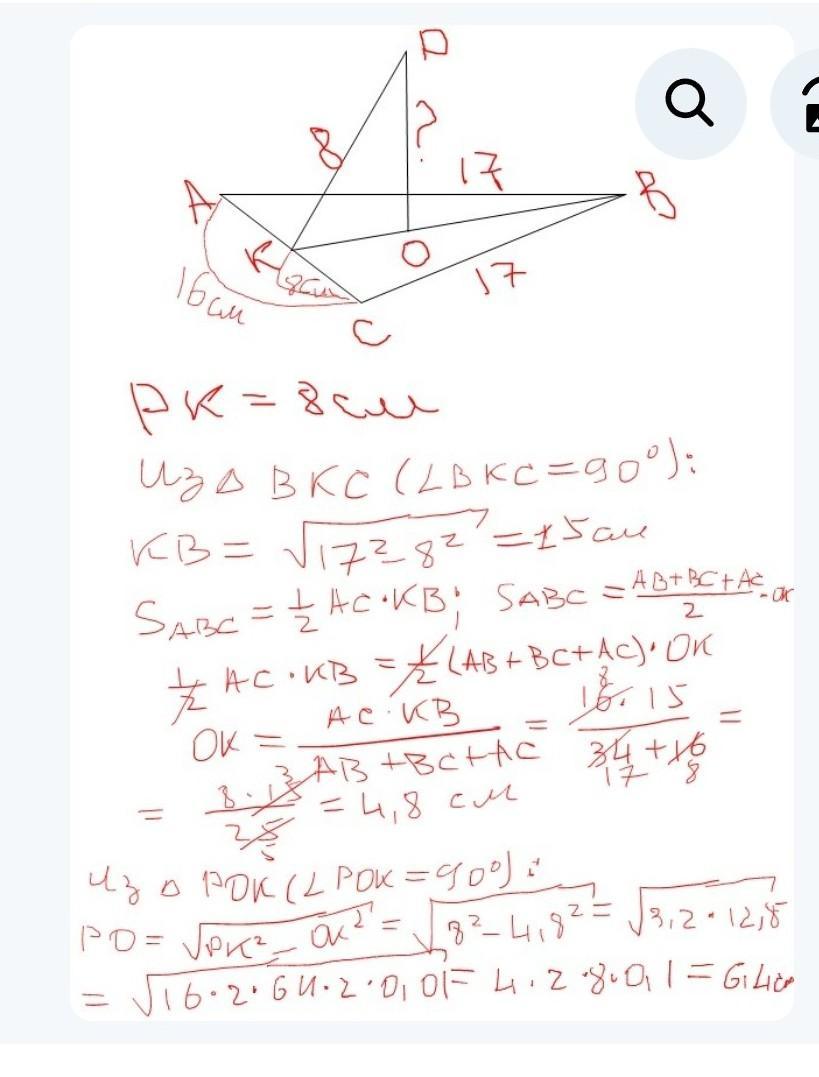 P
8
?
17
A
B
K
O
8см
17
16см
C
PK = 8см
Из △ BKC (∠BKC = 90°):
KB = √17² - 8² = 15см
S_ABC = 1/2 AC · KB; S_ABC = (AB + BC + AC)/2 · OK
1/2 AC · KB = 1/2 (AB + BC + AC) · OK
OK = (AC · KB)/(AB + BC + AC) = (16 · 15)/(34 + 16) =
8
17 8
= (8 · 15)/25 = 4,8 см
3
5
Из △ POK (∠POK = 90°):
PO = √PK² - OK² = √8² - 4,8² = √3,2 · 12,8
= √16 · 2 · 64 · 2 · 0,01 = 4 · 2 · 8 · 0,1 = 6,4см